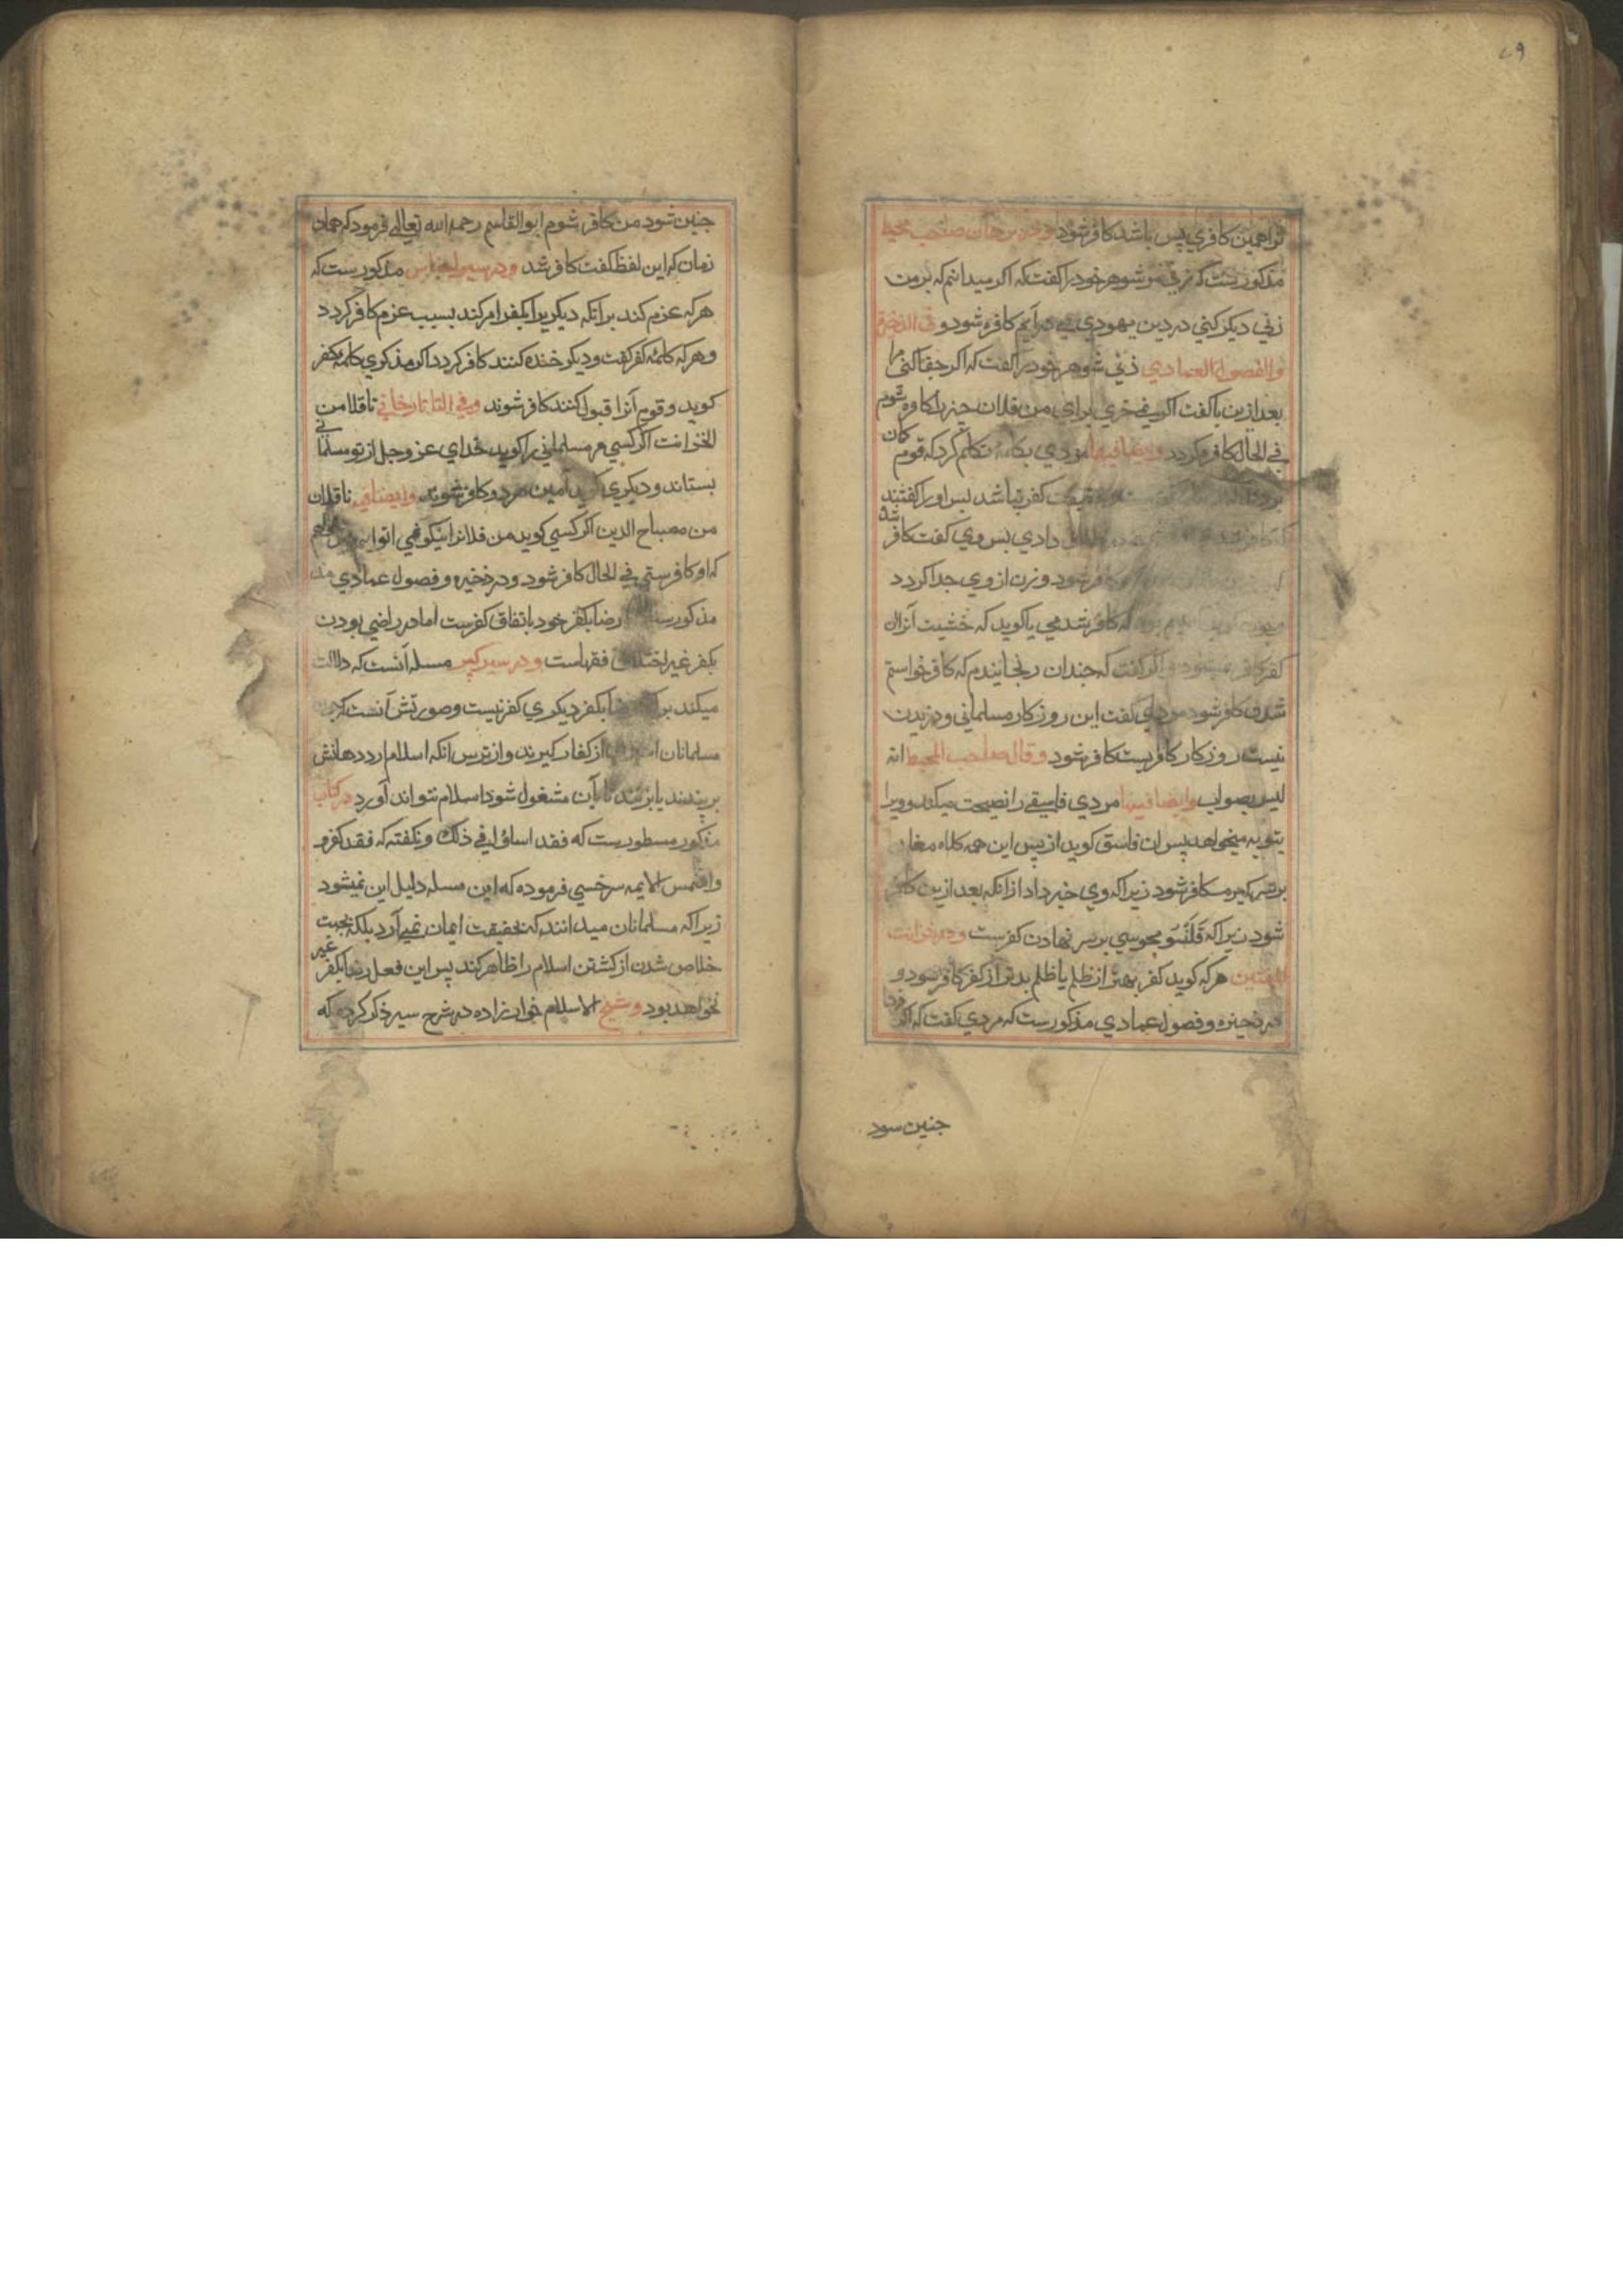 ۶۹
تراهمین کافری پس باشد کافر شود صاحب محیط
مذکورست که زنی مر شوهر خود را کفت که اکر میدانم که بر من
زنی دیکر کنی در دین یهودی می در آیم کافره شود و فی الذخیرة
والفصول العمادی زنی شوهر خود را کفت که اکر جفا کنی مرا
بعد ازین یا کفت اکر نمیخری برای من فلان چیز را کافره شوم
فی الحال کافره کردد و ایضا فیها مردی بکلمه تکلم کرد که قوم کان
کفر نباشد پس او را کفتند
طلاق دادی پس وی کفت کافر شده
کافر شود و زن از وی جدا کردد
که کافر شدمی یا کوید که خشیت آنزان
کفت که چندان رنجانیدم که کافر خواستم
شدن کافر شود مردی کفت این روزکار مسلمانی ورزیدن
نیست روزکار کافریست کافر شود و قال صاحب المحیط انه
لیس بصواب وایضا فیها مردی فاسقی را نصیحت میکند و ویرا
بتوبه میخواهد پس ان فاسق کوید از پس این همه کلاه مغان
بر سر کیرم کافر شود زیرا که وی خبر داد از انکه بعد ازین کافر
شود زیرا که قلنسو مجوسی بر سر نهادن کفرست و در خزانت
المفتین هر که کوید کفر بهتر از ظلم یا ظلم بدتر از کفر کافر شود و
در ذخیره و فصول عمادی مذکورست که مردی کفت که اکر فردا
جنین سود
جنین شود من کافر شوم ابو القاسم رحمه الله تعالی فرمود که همان
زمان که این لفظ کفت کافر شد و در سیر اجناس مذکورست که
هر که عزم کند بر انکه دیکریرا بکفر امر کند بسبب عزم کافر کردد
و هر که کلمه کفر کفت و دیکر خنده کنند کافر کردد اکر مذکری کلمه کفر
کوید و قوم آنرا قبول کنند کافر شوند و فی التاتارخانی ناقلا من
الخزانت اکر کسی مر مسلمانی را کوید خدای عز وجل از تو مسلمانی
بستاند و دیکری کوید آمین هر دو کافر شوند و ایضا فی ناقلان
من مصباح الدین اکر کسی کوید من فلانرا نیکو می
که او کافرستی فی الحال کافر شود و در ذخیره و فصول عمادی مذ
مذکورست رضا بکفر خود باتفاق کفرست اما در راضی بودن
بکفر غیر اختلاف فقهاست و در سیر کبیر مسله آنست که دلالت
میکند بر رضا بکفر دیکری کفر نیست و صورتش آنست که
مسلمانان از کفار کیرند و از ترس انکه اسلام ارد دهانش
بربندند یا بزنند تا بآن مشغول شود اسلام نتواند آورد در کتاب
مذکور مسطورست که فقد اساؤا فی ذلک و نکفته که فقد کفرو
و شمس الایمه سرخسی فرموده که این مسله دلیل این نمیشود
زیرا که مسلمانان میدانند که بحقیقت ایمان نمی آرد بلکه بجهت
خلاص شدن از کشتن اسلام را ظاهر کند پس این فعل رضا بکفر غیر
نخواهد بود و شیخ الاسلام خواهر زاده در شرح سیر ذکر کرده که